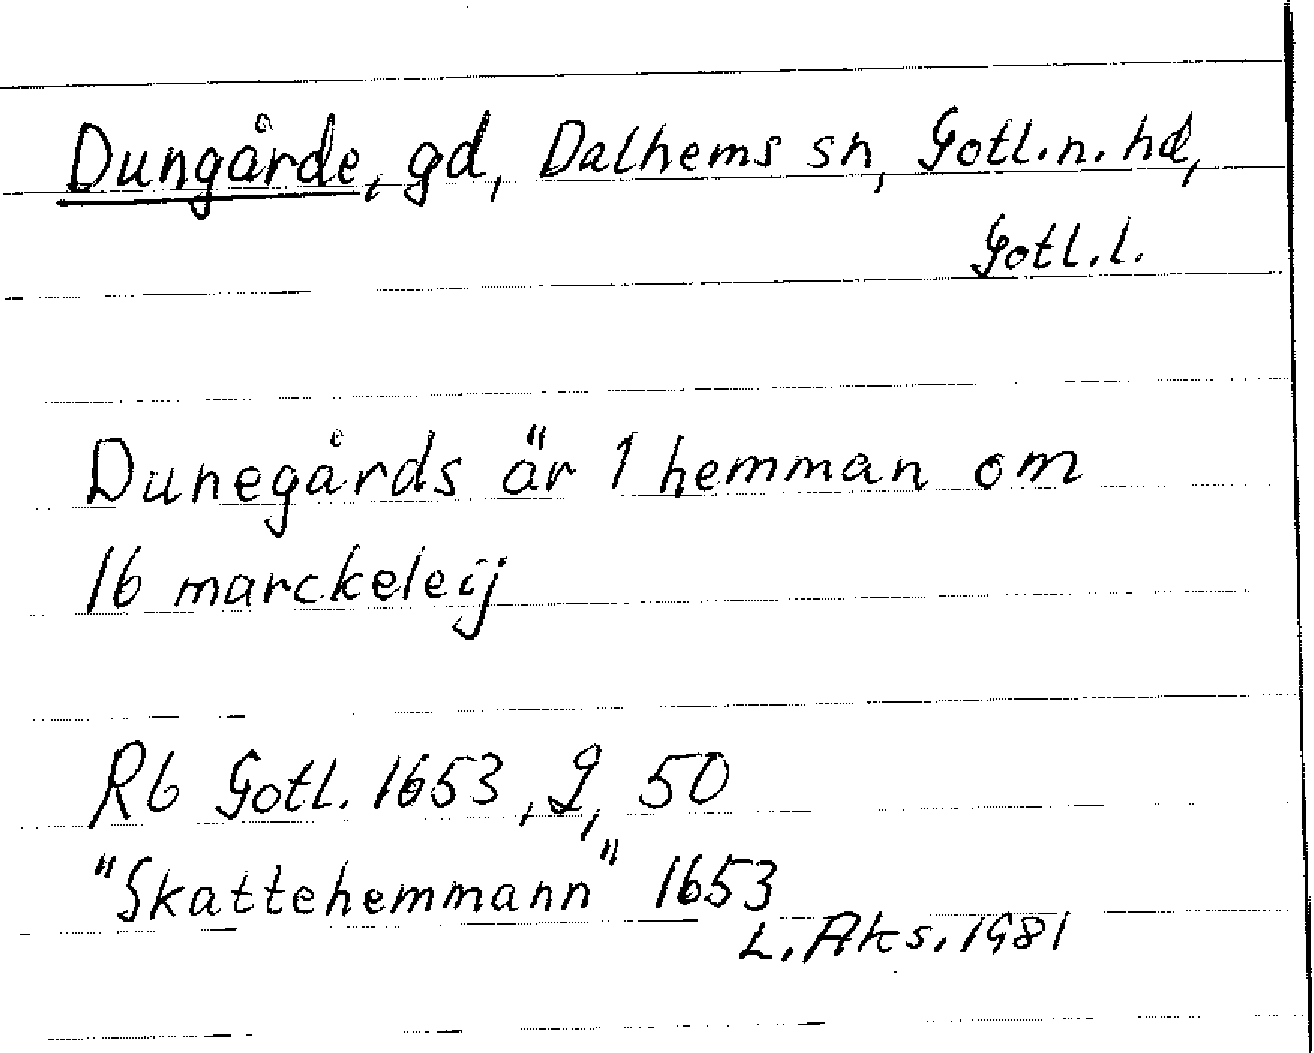 Dungårde, gd, Dalhems sn, Gotl.n.hd,
Gotl.l.
Dunegårds är 1 hemman om
16 marckeleij
Rb Gotl. 1653, 2, 50
"Skattehemmann" 1653
L. Aks. 1981